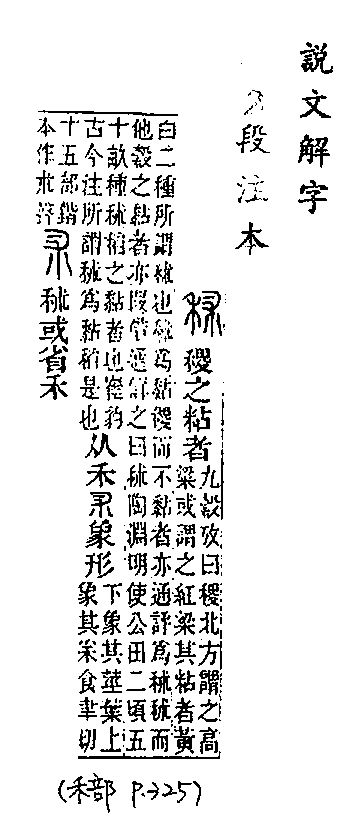 説文解字
段注本
秫 稷之粘者 九穀攷曰稷北方謂之高
粱或謂之紅粱其粘者黃
白二種所謂秫也秫爲黏稷而不黏者亦通評爲秫秫而
他穀之黏者亦叚借通評之曰秫陶淵明使公田二頃五
十畝種秫稻之黏者也崔豹
古今注所謂秫爲黏稻是也
从禾朮象形 下象其莖葉上
象其采食聿切
十五部鍇
本作朮聲
朮 秫或省禾
(禾部 P.325)